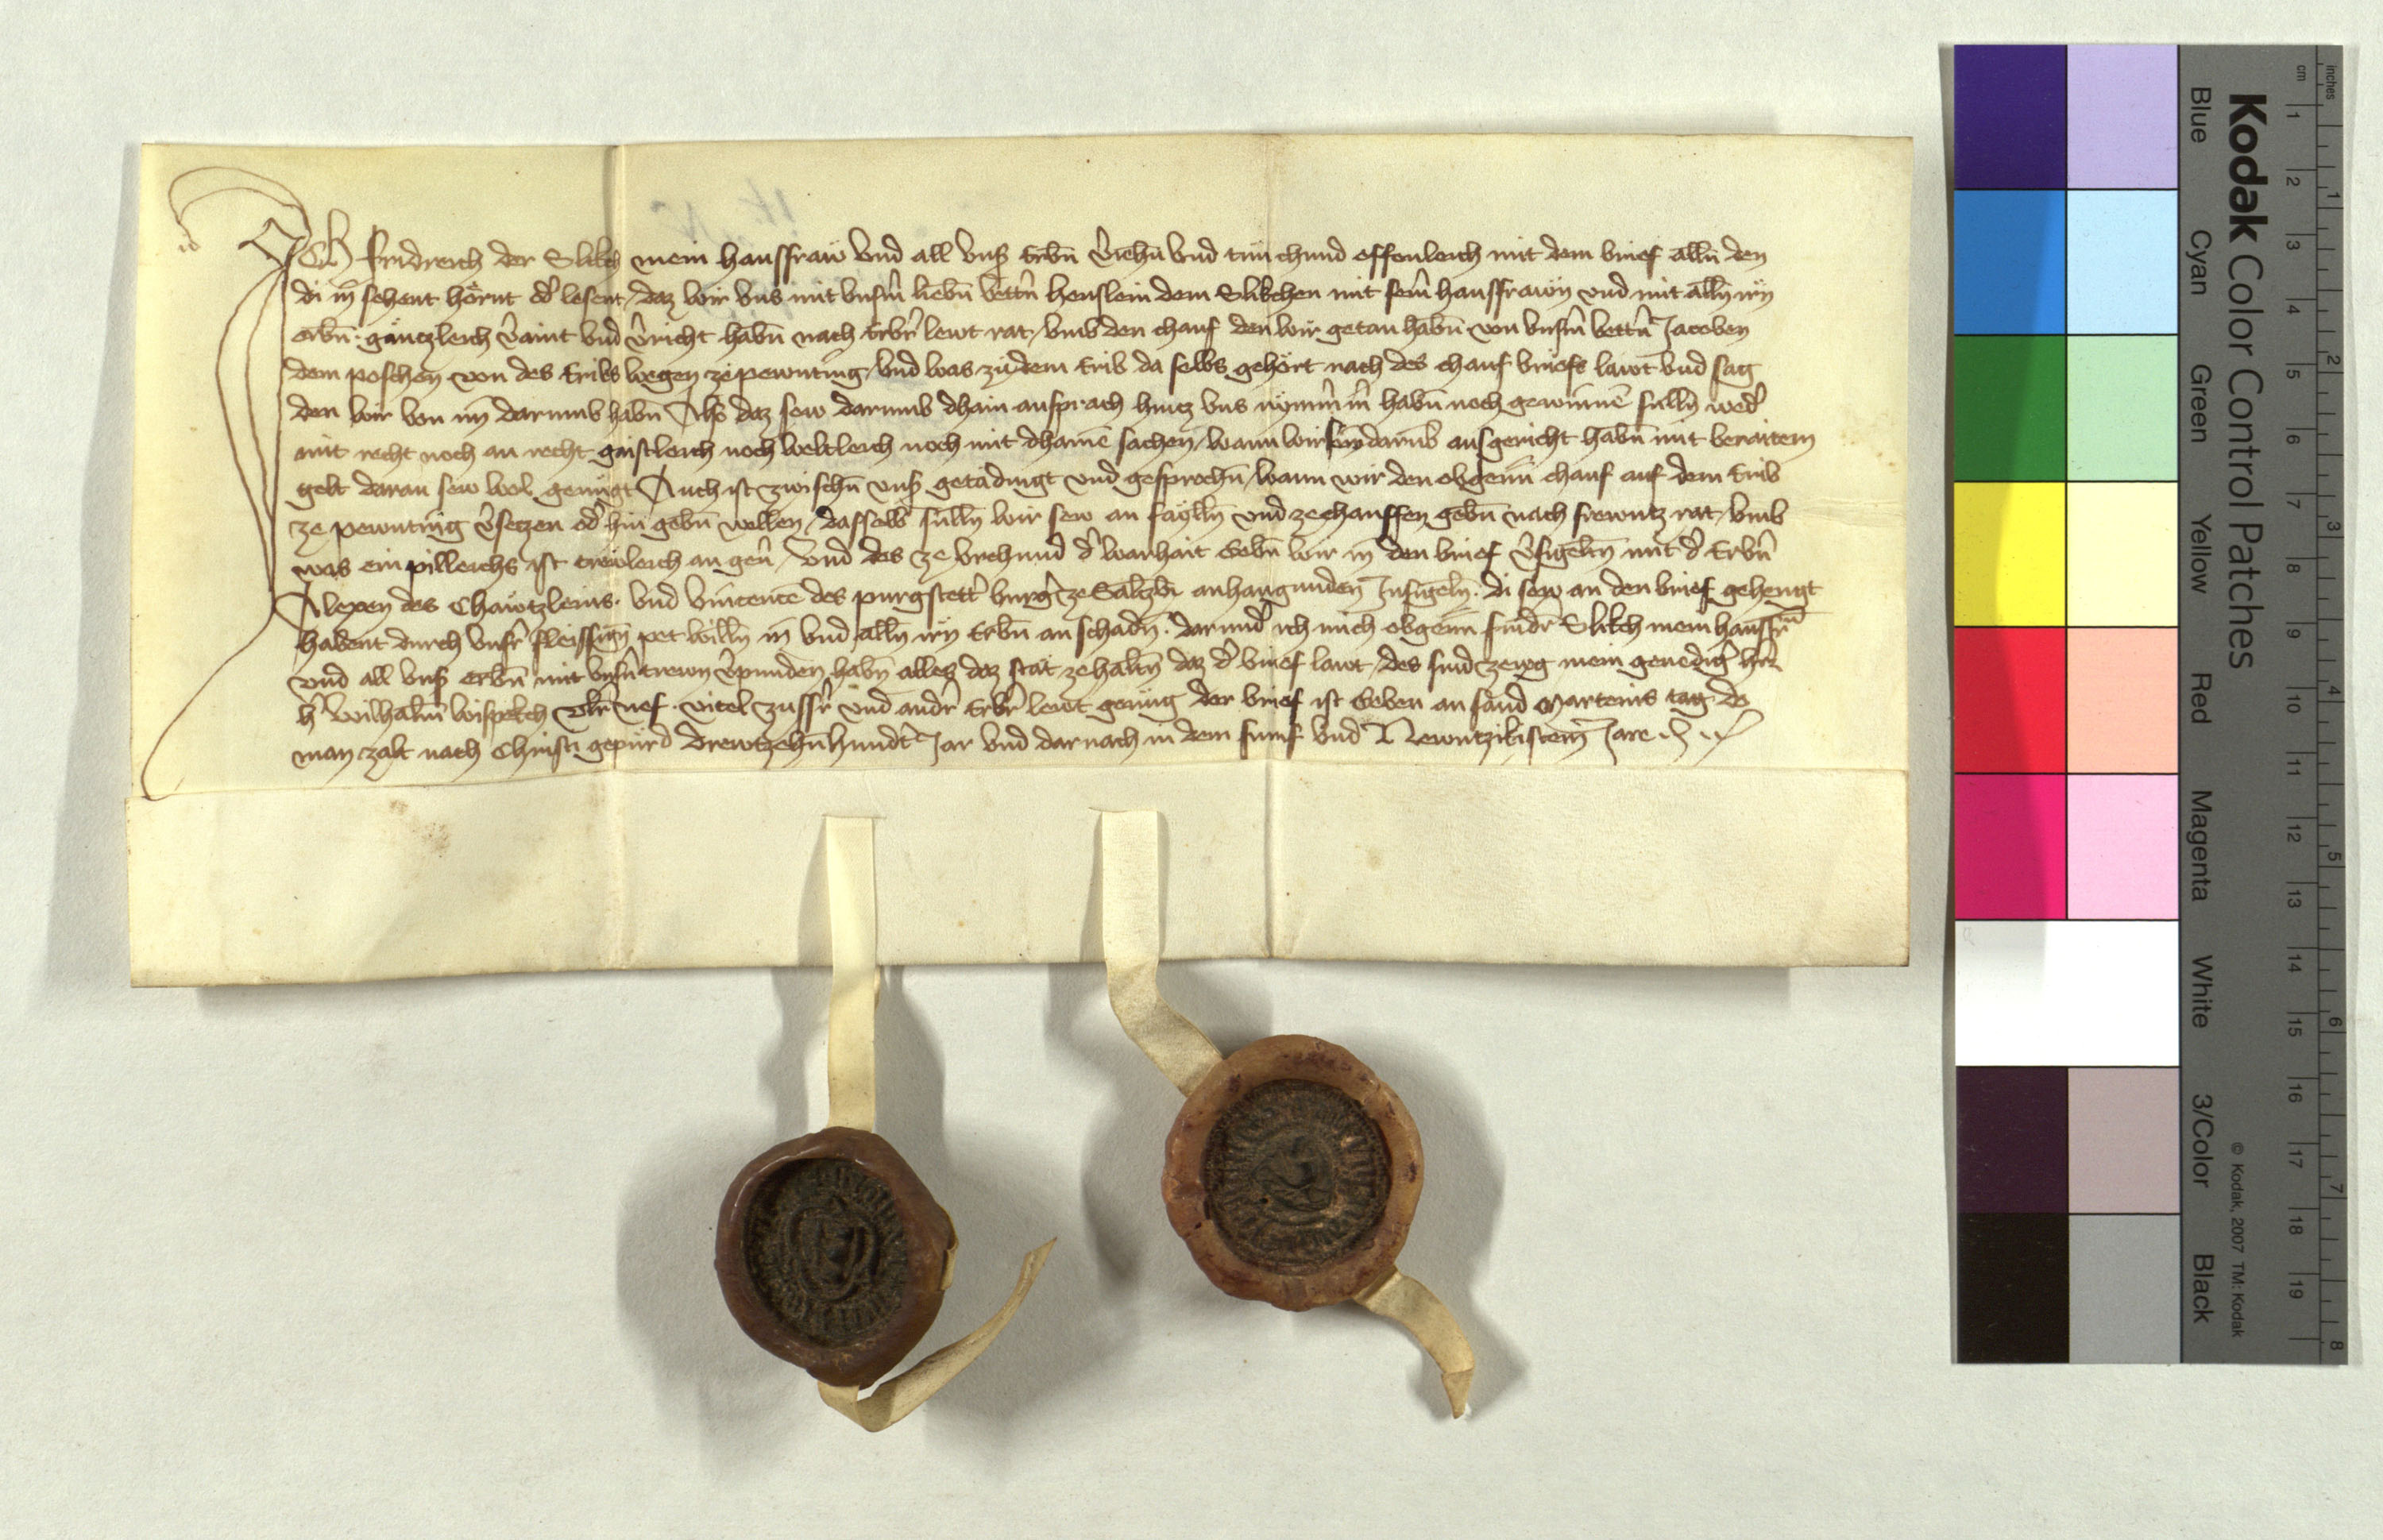 Ich Fridreich der Slikch mein hausfraw vnd all vnß Erbn̄ v̓iehn̄ vnd tun chund offenleich mit dem brief alln̄ den
di in̄ sehent hörnt od̓ lesent, daz wir vns mit vnsm̄ liebn̄ vettn̄ henslein dem Slikchen mit sein̄ hausfrawn̄ vnd mit alln̄ irn̄
erbn̄ gäntzleich v̓aint vnd v̓richt habn̄ nach Erbr̄ lewt rat, vmb den chauf den wir getan habn̄ von vnsm̄ vettn̄ Jacoben
dem poschen von des Eribs wegen ze pewnting, vnd was zu dem Erib da selbs gehört nach des chauf briefs lawt vnd sag
den wir von im darumb habn̄ Also daz sew darumb dhain ansprach hintz vns nymm̄ habn̄ noch gewinne süllen wed̓
mit recht noch an recht gaistleich noch weltleich noch mit dhaine sachen, wann wir sew darumb ausgericht habn̄ mit beraitem
gelt daran sew wol genügt Auch ist zwischn̄ vnß getädingt vnd gesprochn̄, wann wir den obgenn̄ chauf auf dem Erib
ze pewnting v̓setzen od̓ hin gebn̄ wellen, dasselb sülln̄ wir sew an fäylln̄ vnd ze chauffen gebn̄ nach frewntz rat, vmb
was ein pilleichs ist trewleich an gen̄, Vnd des ze vrchund d̓ warhait Gebn̄ wir in̄ den brief v̓sigeltn̄ mit d̓ Erbn̄
Alexen des Chäwtzleins. vnd vincentē des purgstett̓ burg̓ ze Saltzb̄ anhangunden Insigeln̄. di sew an den brief gehengt
habent durch vnsr̄ fleissign̄ pet willn̄ in̄ vnd alln̄ irn̄ Erbn̄ an schadn̄. dar und̓ ich mich obgenn̄ fridr̄ Slikch mein hausfrn̄
vnd all vnß erbn̄ mit vnsn̄ trewn v̓punden habn̄ alles daz stät ze haltn̄ daz d̓ brief lawt, des sind zewg mein genedig̓ h̓r
h̓ Wilhalm̄ Wispekch Vlr̄ nef. vitel zussr̄ vnd andr̄ Erbr̄ lewt genüg der brief ist Geben an sand Marteins tag do
man zalt nach Christi gepürd Drewtzehn̄hundt̓ Jar vnd darnach in dem fumf vnd Newntzikistem Jare
Kodak Color Control Patches
Blue Cyan Green Yellow Red Magenta White 3/Color Black
© Kodak, 2007 TM: Kodak
cm 1 2 3 4 5 6 7 8 9 10 11 12 13 14 15 16 17 18 19
inches 1 2 3 4 5 6 7 8